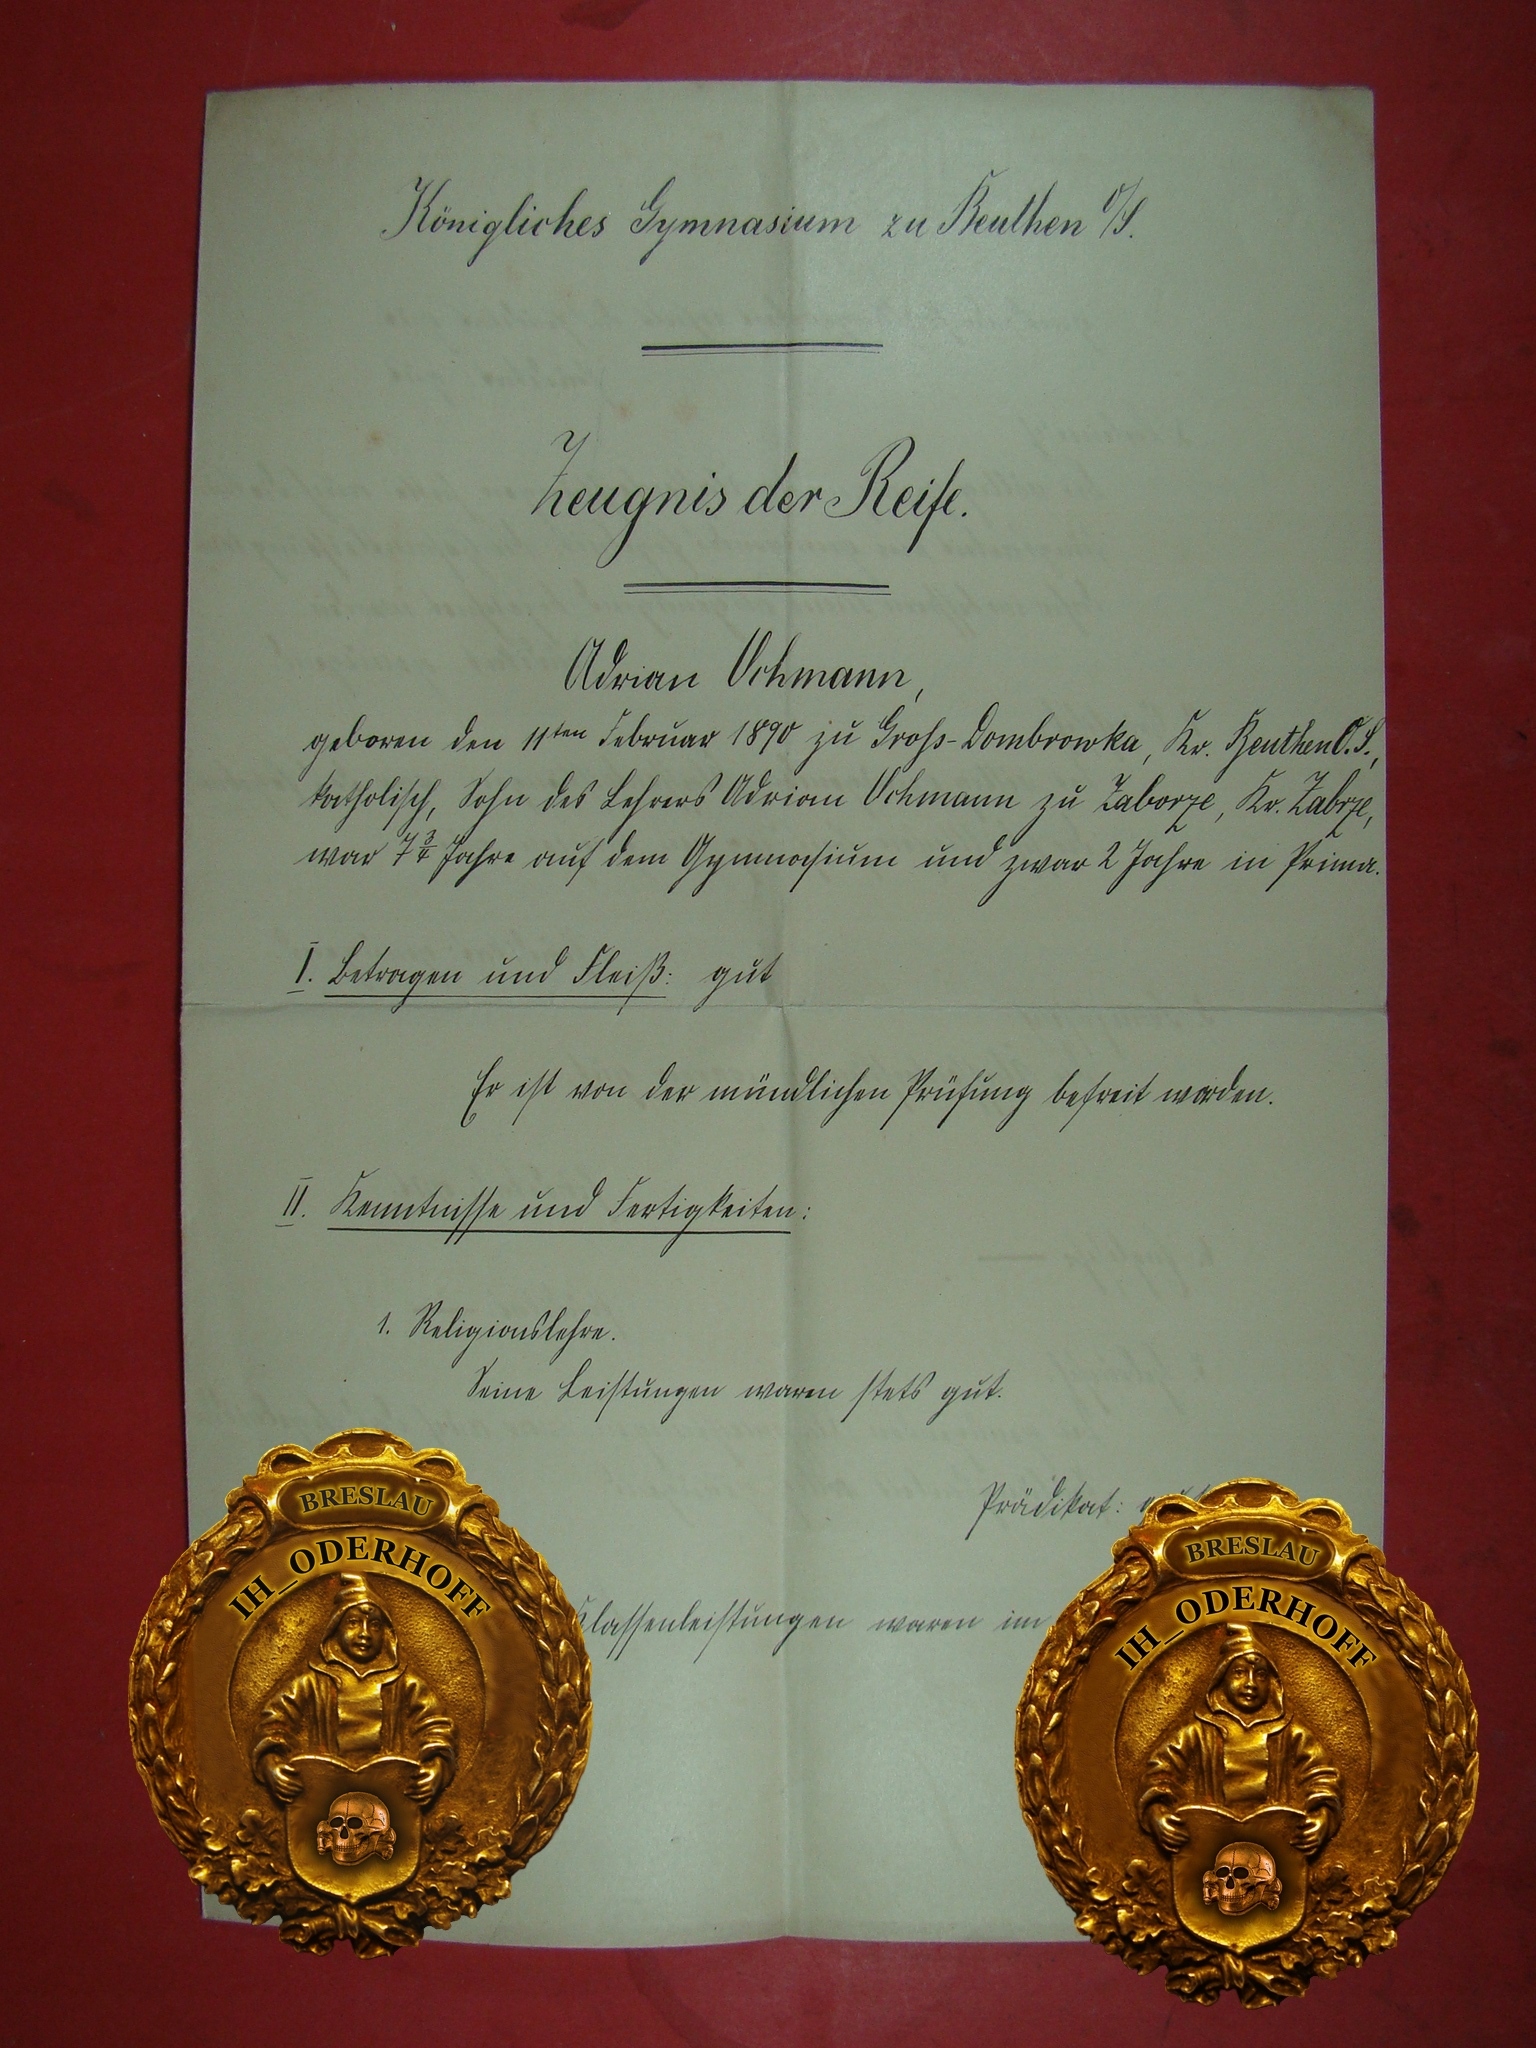 Königliches Gymnasium zu Beuthen O/S.
Zeugnis der Reife.
Adrian Ochmann,
geboren den 11ten Februar 1890 zu Groß-Dombrowka, Kr. Beuthen O.S.,
katholisch, Sohn des Lehrers Adrian Ochmann zu Zaborze, Kr. Zabrze,
war 7 3/4 Jahre auf dem Gymnasium und zwar 2 Jahre in Prima.
I. Betragen und Fleiß: gut
Er ist von der mündlichen Prüfung befreit worden.
II. Kenntnisse und Fertigkeiten:
1. Religionslehre.
Seine Leistungen waren stets gut.
Prädikat:
Klassenleistungen waren im
BRESLAU
IH_ODERHOFF
BRESLAU
IH_ODERHOFF